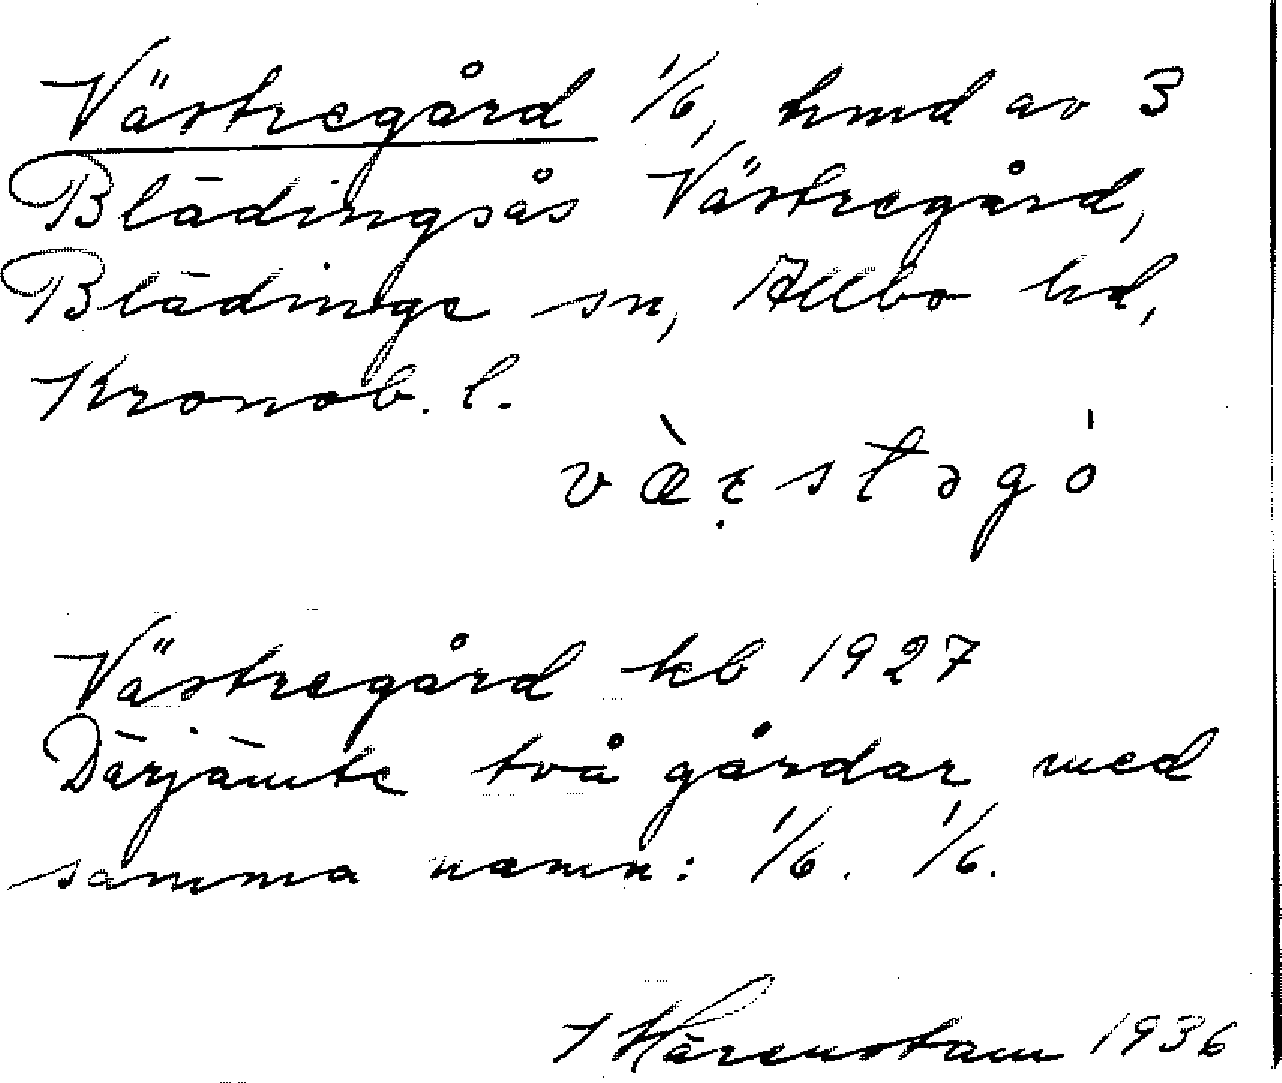 Västregård 1/6, hmd av 3
Blädingsås Västregård,
Blädinge sn, Allbo hd,
Kronob. l.
Västregård kb 1927
Därjämte två gårdar med
samma namn: 1/6. 1/6.
Härenstam 1936